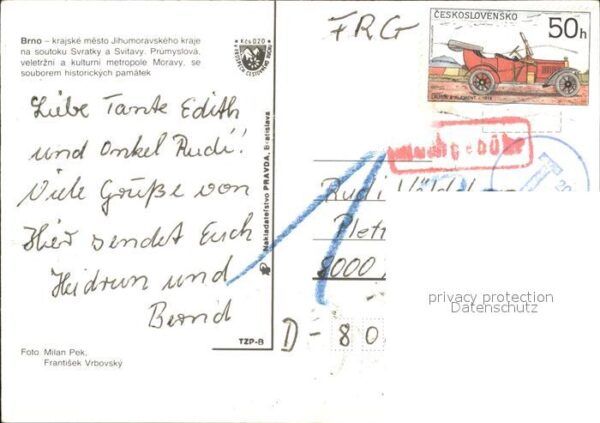 Brno – krajské město Jihomoravského kraje
na soutoku Svratky a Svitavy. Průmyslová,
veletržní a kulturní metropole Moravy, se
souborem historických památek
Kčs 0,20
Liebe Tante Edith
und Onkel Rudi!!
Viele Grüße von
Hier sendet Euch
Heidrun und
Bernd
Foto: Milan Pek,
František Vrbovský
Nakladatelstvo PRAVDA, Bratislava
TZP-B
FRG
ČESKOSLOVENSKO
50h
Rudi
8000
D-80
privacy protection
Datenschutz